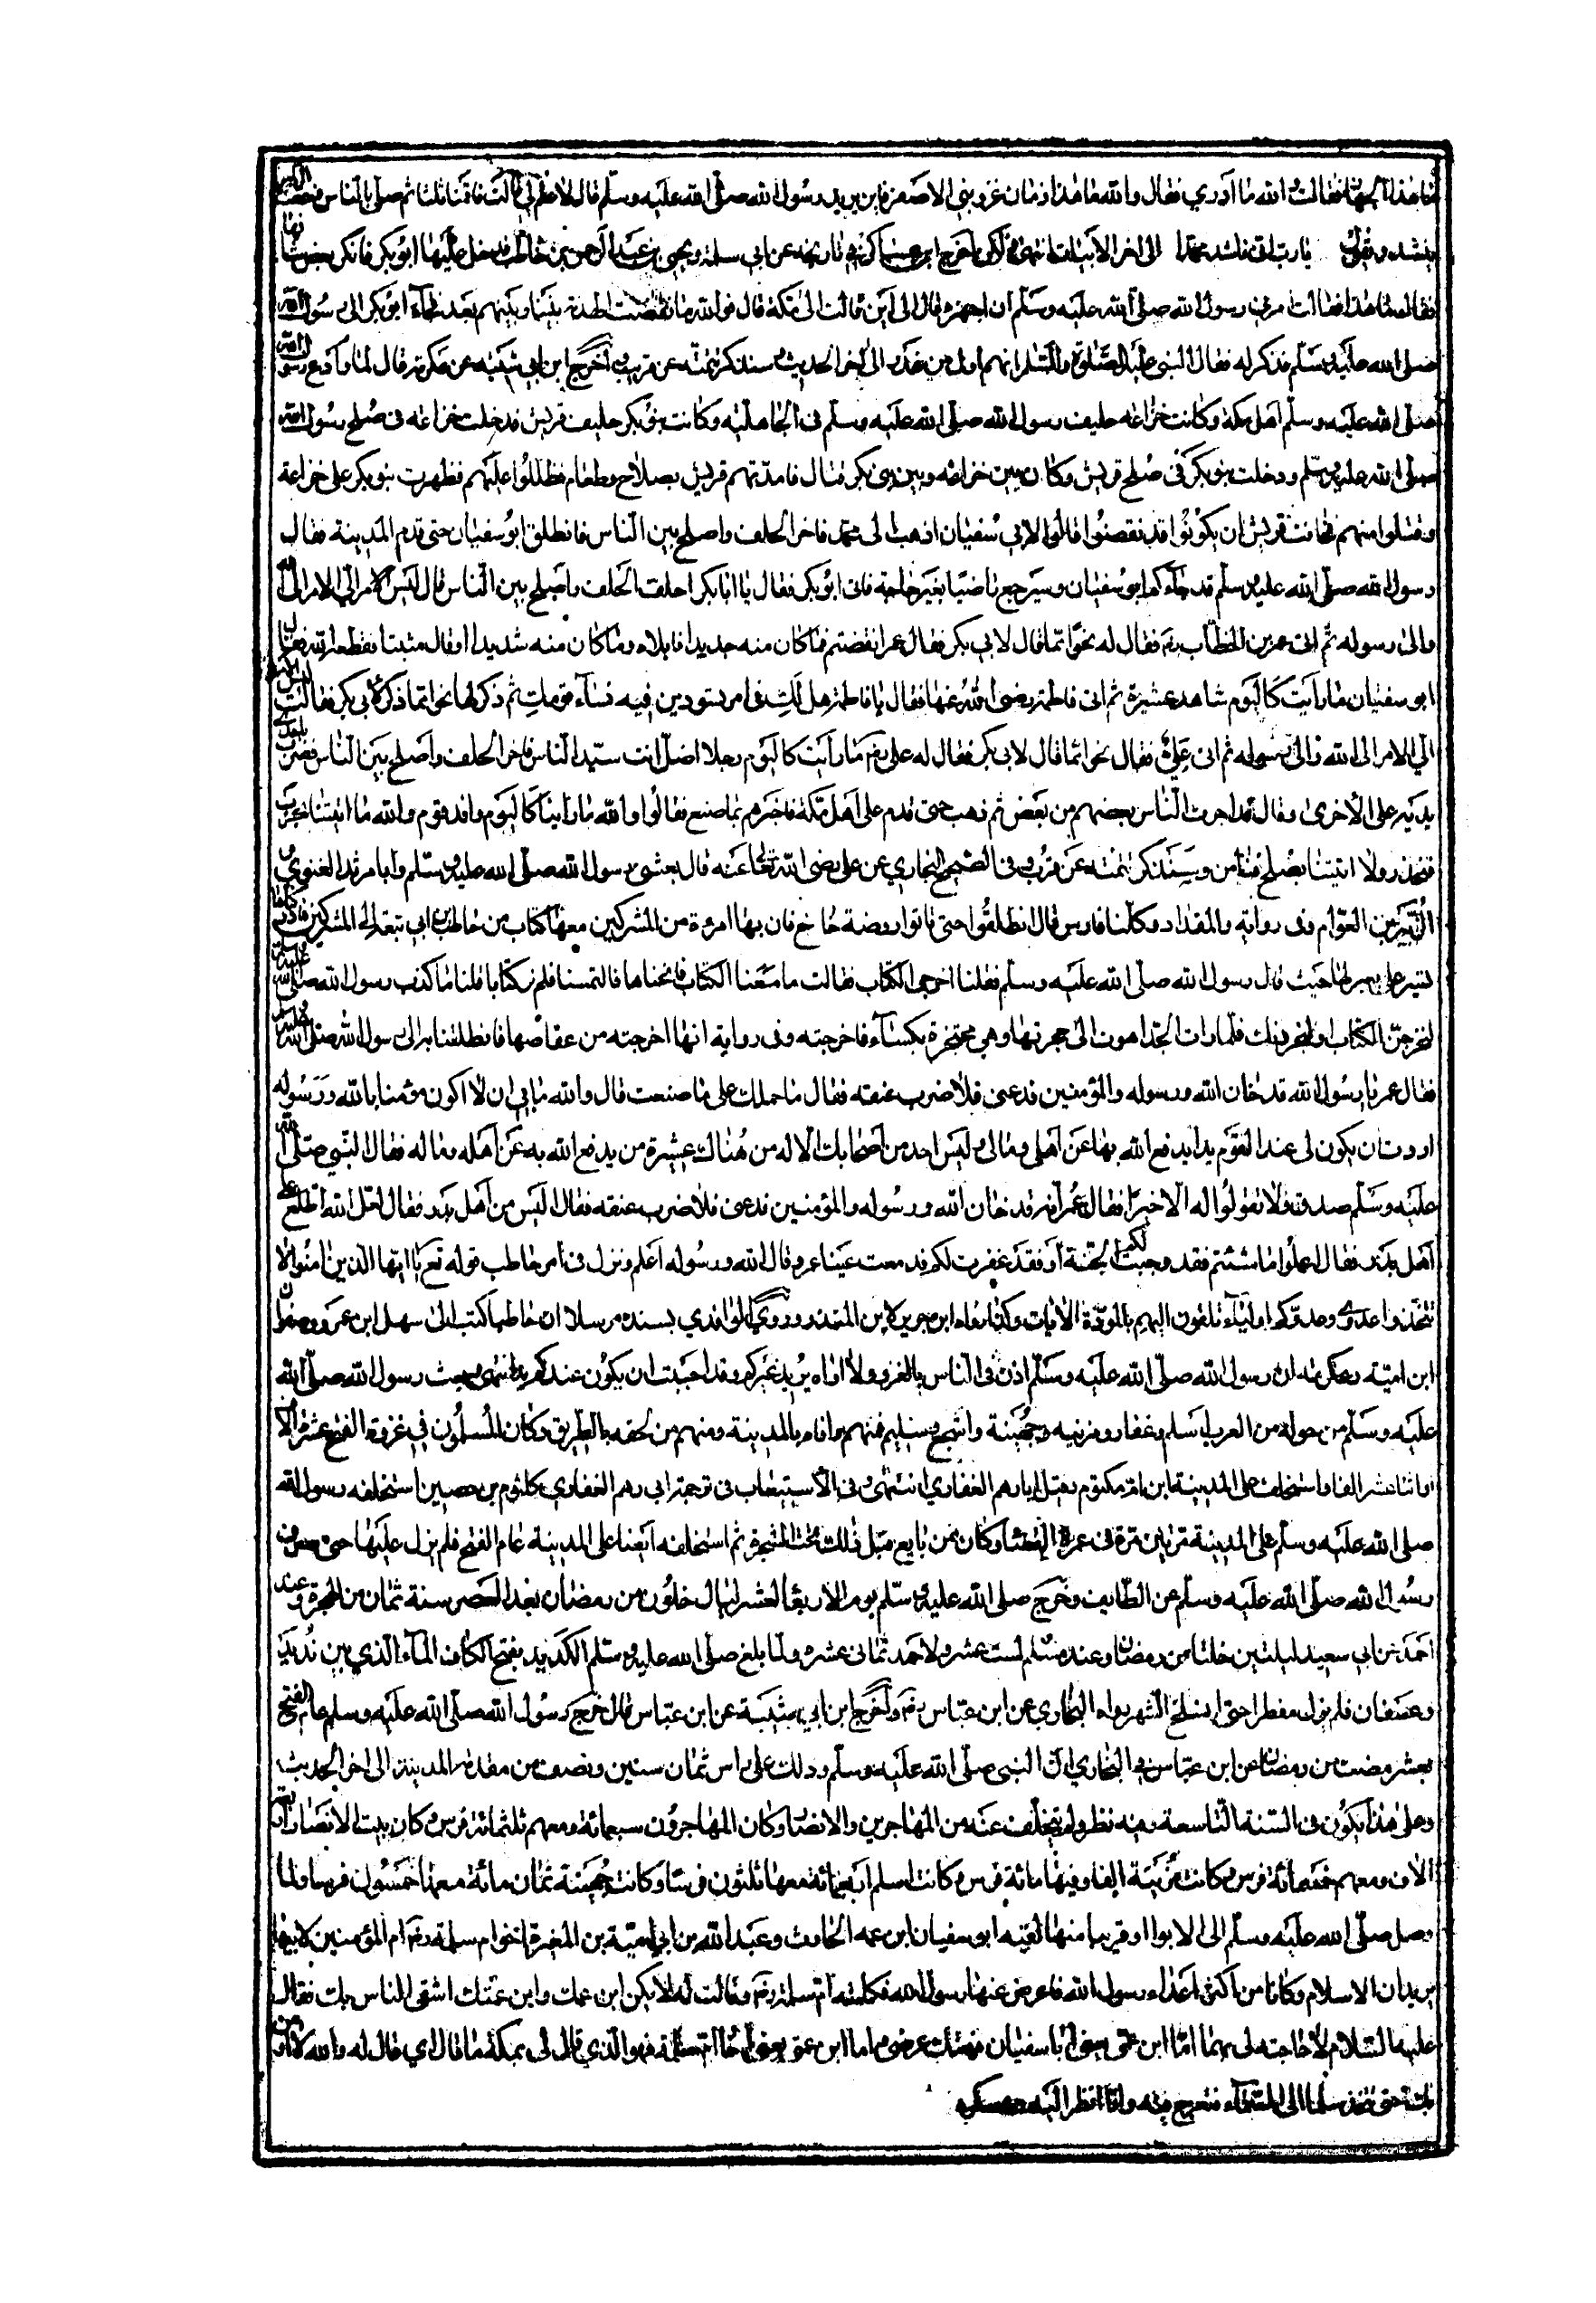 ما هذا الجهاز فقالت والله ما ادري فقال والله ما هذا زمان غزو بني الاصفر فاين يريد رسول الله صلى الله عليه وسلم قال لا علم لي قالت فاقمنا ثلثا ثم صلى بالناس فسمعت الراجز
ينشد ويقول يا رب اني ناشد محمدا الى اخر الابيات انتهى واخرج ابن عساكر في تاريخه عن ابي سلمة ويحيى بن عبد الرحمن بن حاطب دخل عليها ابو بكر فانكر بعض شانها
فقال ما هذا فقالت امرني رسول الله صلى الله عليه وسلم ان اجهزه قال الى اين قالت الى مكة قال فوالله ما نقضت الهدنة بيننا وبينهم بعد فجاء ابو بكر الى رسول الله
صلى الله عليه وسلم فذكر له فقال النبي عليه الصلوة والسلام انهم اول من غدر الى اخر الحديث وسنذكر تتمته عن قريب واخرج ابن ابي شيبة عن عكرمة قال لما وادع رسول الله
صلى الله عليه وسلم اهل مكة وكانت خزاعة حليف رسول الله صلى الله عليه وسلم في الجاهلية وكانت بنو بكر حليف قريش فدخلت خزاعة في صلح رسول الله
صلى الله عليه وسلم ودخلت بنو بكر في صلح قريش وكان بين خزاعة وبين بني بكر قتال فامدتهم قريش بصلاح وطعام فظللوا عليهم فظهرت بنو بكر على خزاعة
وقتلوا منهم فخافت قريش ان يكونوا قد نقضوا قالوا لابي سفيان اذهب الى محمد فاخر الحلف واصلح بين الناس فانطلق ابو سفيان حتى قدم المدينة فقال
رسول الله صلى الله عليه وسلم قد جاءكم ابو سفيان وسيرجع راضيا بغير حاجة فاتى ابو بكر فقال يا ابا بكر احلف الحلف واصلح بين الناس قال ليس الامر الي الامر الى الله
والى رسوله ثم اتى عمر بن الخطاب رضه فقال له نحوا مما قال لابي بكر فقال عمر انقضتم فما كان منه جديدا فابلاه وما كان منه شديدا او قال مثبتا فقطعه الله فقال
ابو سفيان ما رايت كاليوم شاهد عشيرة ثم اتى فاطمة رضي الله عنها فقال يا فاطمة هل لك في امر تسودين فيه نساء قومك ثم ذكر لها نحوا مما ذكر لابي بكر فقالت ليس الامر
الي الامر الى الله والى رسوله ثم اتى علي فقال نحوا مما قال لابي بكر فقال له علي رضه ما رايت كاليوم رجلا اضل انت سيد الناس فاخر الحلف واصلح بين الناس فضرب باحدى
يديه على الاخرى وقال قد اجرت الناس بعضهم من بعض ثم ذهب حتى قدم على اهل مكة فاخبرهم بما صنع فقالوا والله ما راينا كاليوم وافد قوم والله ما اتيتنا بحرب
فنحذر ولا اتيتنا بصلح فنامن وسنذكر تتمته عن قرب وفي الصحيح البخاري عن علي رضي الله تعالى عنه قال بعثني رسول الله صلى الله عليه وسلم وابا مرثد الغنوي و
الزبير بن العوام وفي رواية والمقداد وكلنا فارس قال انطلقوا حتى تاتوا روضة خاخ فان بها امرءة من المشركين معها كتاب من حاطب بن ابي بلتعة الى المشركين فادركناها
تسير على بعير لها حيث قال رسول الله صلى الله عليه وسلم فقلنا اخرجي الكتاب فقالت ما معنا الكتاب فانخناها فالتمسنا فلم نر كتابا قلنا ما كذب رسول الله صلى الله عليه وسلم
لتخرجن الكتاب او لنجردنك فلما رات الجد اهوت الى حجزتها وهي محتجزة بكساء فاخرجته وفي رواية انها اخرجته من عقاصها فانطلقنا به الى رسول الله صلى الله عليه وسلم
فقال عمر يا رسول الله قد خان الله ورسوله والمؤمنين فدعني فلاضرب عنقه فقال ما حملك على ما صنعت قال والله ما بي ان لا اكون مؤمنا بالله ورسوله
اردت ان يكون لي عند القوم يدا يدفع الله بها عن اهلي ومالي وليس احد من اصحابك الا له من هناك عشيرة من يدفع الله به عن اهله وماله فقال النبي صلى الله
عليه وسلم صدق فلا تقولوا له الا خيرا فقال عمر انه قد خان الله ورسوله والمؤمنين فدعني فلاضرب عنقه فقال اليس من اهل بدر فقال لعل الله اطلع على
اهل بدر فقال اعملوا ما شئتم فقد وجبت لكم الجنة او فقد غفرت لكم فدمعت عينا عمر وقال الله ورسوله اعلم ونزل في امر حاطب قوله تع يا ايها الذين امنوا لا
تتخذوا عدوي وعدوكم اولياء تلقون اليهم بالمودة الايات وكذا رواه ابن جرير وابن المنذر وروي الواقدي بسنده مرسلا ان حاطبا كتب الى سهل ابن عمرو وصفوان
ابن امية وعكرمة ان رسول الله صلى الله عليه وسلم اذن في الناس بالغزو ولا اراه يريد غيركم وقد احببت ان يكون عندكم يد انتهى وبعث رسول الله صلى الله
عليه وسلم من حوله من العرب اسلم وغفار ومزينة وجهينة واشجع وسليم فمنهم وافاه بالمدينة ومنهم من لحقه بالطريق وكان المسلمون في غزوة الفتح عشرة الاف
او اثنا عشر الفا واستخلف على المدينة ابن ام مكتوم وقيل ابا رهم الغفاري انتهى وفي الاستيعاب في ترجمة ابي رهم الغفاري كلثوم بن حصين استخلفه رسول الله
صلى الله عليه وسلم على المدينة مرتين مرة في عمرة القضاء وكان ممن بايع قبل ذلك تحت الشجرة ثم استخلفه ايضا على المدينة عام الفتح فلم يزل عليها حتى انصرف
رسول الله صلى الله عليه وسلم عن الطايف وخرج صلى الله عليه وسلم يوم الاربعا لعشر ليال خلون من رمضان بعد العصر سنة ثمان من الهجرة وعند
احمد عن ابي سعيد لليلتين خلتا من رمضان وعند مسلم لست عشر ولاحمد ثماني عشرة ولما بلغ صلى الله عليه وسلم الكديد بفتح الكاف الماء الذي بين قديد
وعسفان فلم يزل مفطرا حتى انسلخ الشهر رواه البخاري عن ابن عباس رضه واخرج ابن ابي شيبة عن ابن عباس قال خرج رسول الله صلى الله عليه وسلم عام الفتح
لعشر مضت من رمضان عن ابن عباس في البخاري ان النبي صلى الله عليه وسلم وذلك على راس ثمان سنين ونصف من مقدمه المدينة الى اخر الحديث
وعلى هذا يكون في السنة التاسعة وفيه نظر ولم يتخلف عنه من المهاجرين والانصار وكان المهاجرون سبعمائة ومعهم ثلثمائة فرس وكان بيت الانصار اربعة
الاف ومعهم خمسمائة فرس وكانت مزينة الفا وفيها مائة فرس وكانت اسلم اربعمائة معها ثلثون فرسا وكانت جهينة ثمان مائة معها خمسون فرسا ولما
وصل صلى الله عليه وسلم الى الابوا او قريبا منها لقيه ابو سفيان ابن عمه الحارث وعبد الله بن ابي امية بن المغيرة اخو ام سلمة رضه ام المؤمنين لابيها
يريدان الاسلام وكانا من اكثر اعداء رسول الله فاعرض عنها رسول الله فكلمته ام سلمة رضه وقالت له لا يكن ابن عمك وابن عمتك اشقى الناس بك فقال
عليه السلام لا حاجة لي بهما اما ابن عمي يعني ابا سفيان فهتك عرضي واما ابن عمتي يعني اخا ام سلمة فهو الذي قال لي بمكة ما قال اي قال له والله لا اومن
بك حتى تتخذ سلما الى السماء فتعرج فيه وانا انظر اليه